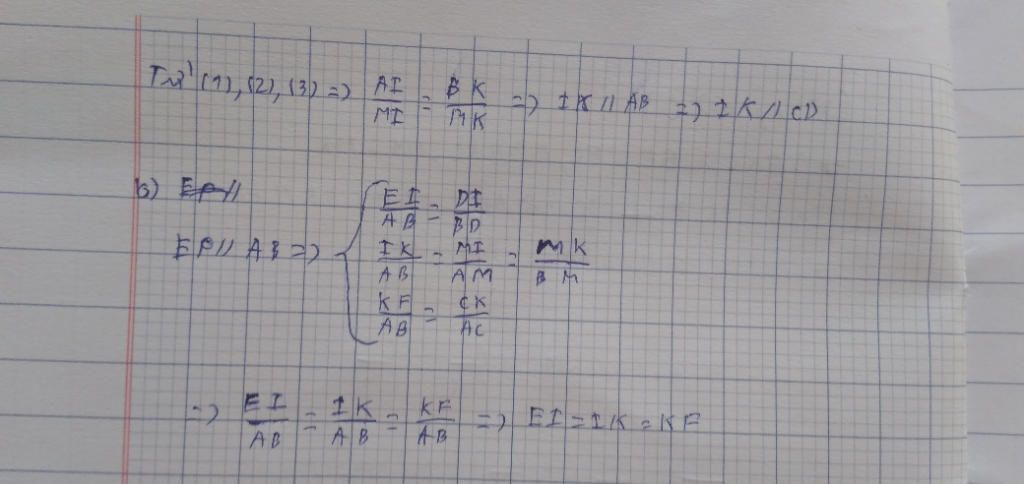 Từ (1), (2), (3) => AI/MI = BK/MK => IK // AB => IK // CD
b)
EF // AB => { EI/AB = DI/BD
IK/AB = MI/AM = MK/BM
KF/AB = CK/AC
=> EI/AB = IK/AB = KF/AB => EI = IK = KF